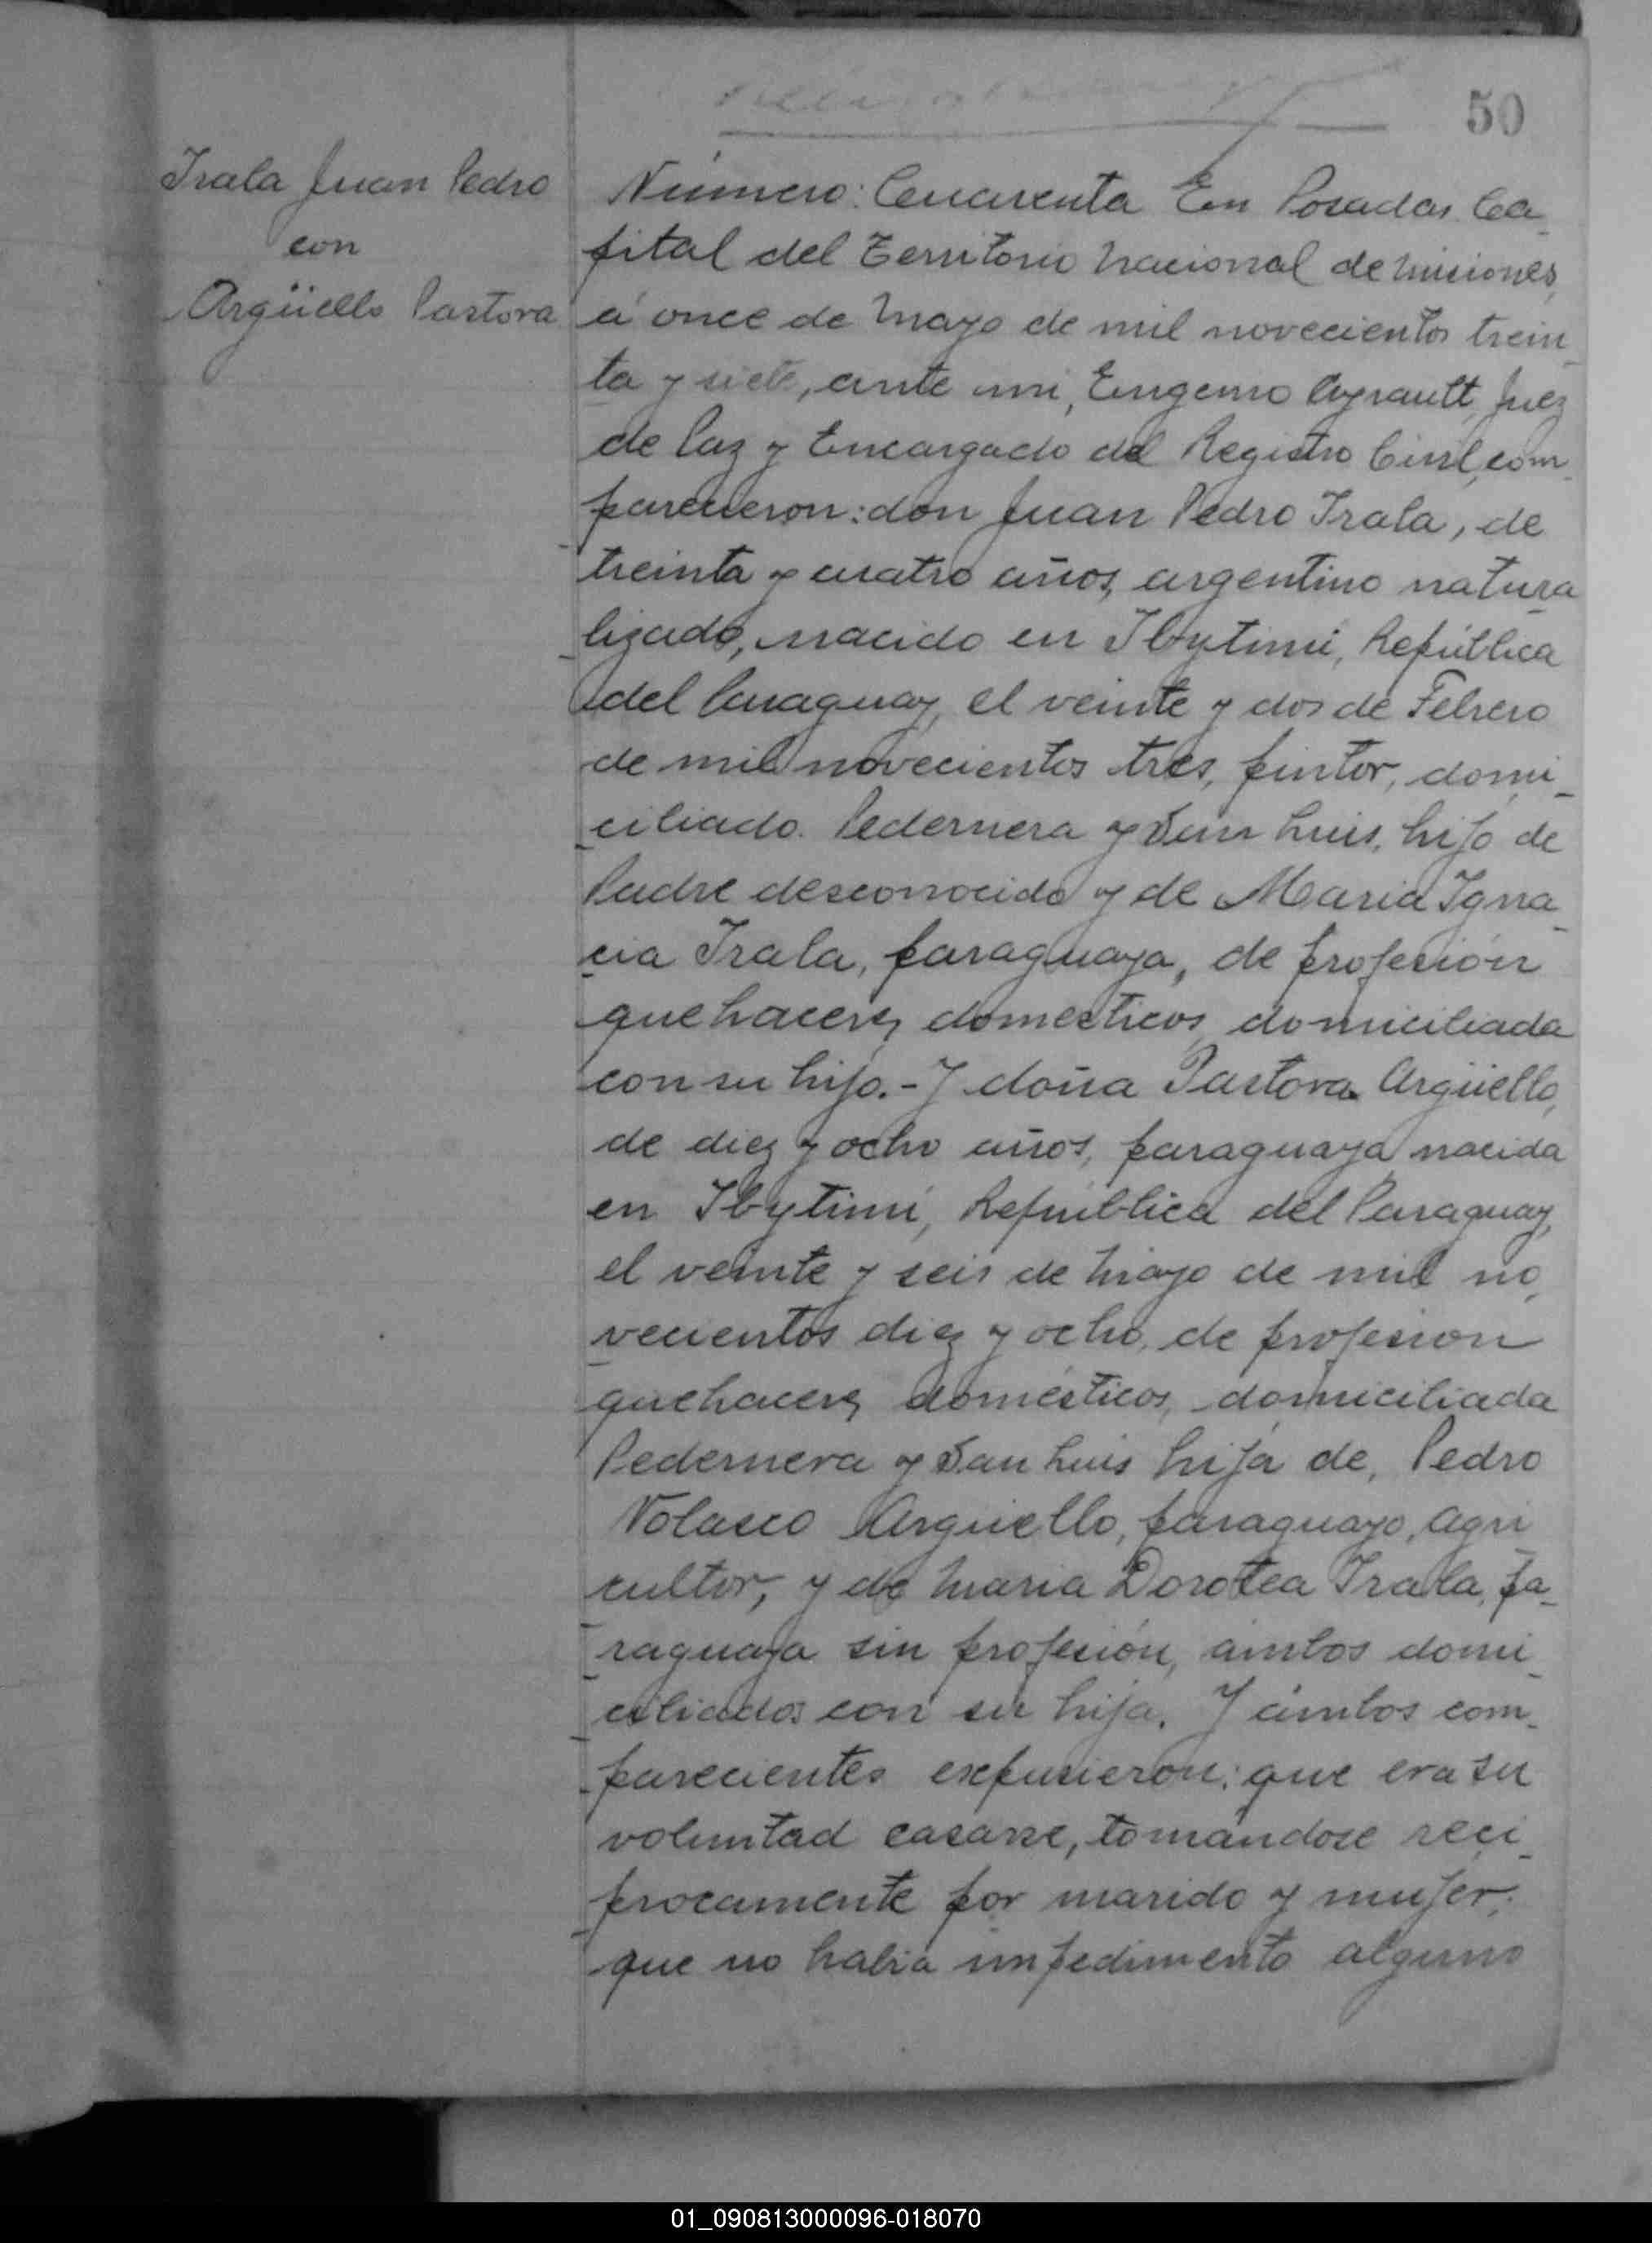 50
Irala Juan Pedro
con
Argüello Pastora
Número: Cuarenta En Posadas Ca_
pital del Territorio Nacional de Misiones,
á once de Mayo de mil novecientos trein_
ta y siete, ante mi, Eugenio Ayrault, Juez
de Paz y Encargado del Registro Civil, com_
parecieron: don Juan Pedro Irala, de
treinta y cuatro años, argentino natura_
lizado, nacido en Ibytimí, República
del Paraguay, el veinte y dos de Febrero
de mil novecientos tres, pintor, domi_
ciliado Pedernera y San Luis, hijo de
Padre desconocido y de Maria Igna_
cia Irala, paraguaya, de profesión
quehaceres domesticos, domiciliada
con su hijo.- Y doña Pastora Argüello,
de diez y ocho años, paraguaya nacida
en Ibytimí, República del Paraguay,
el veinte y seis de Mayo de mil no_
vecientos diez y ocho, de profesion
quehaceres domésticos, domiciliada
Pedernera y San Luis hija de, Pedro
Nolasco Argüello, paraguayo, Agri_
cultor, y de Maria Dorotea Irala, pa_
raguaya sin profesión, ambos domi_
ciliados con su hija. Y ámbos com_
parecientes expusieron: que era su
voluntad casarse, tomándose reci_
procamente por marido y mujer;
que no habia impedimento alguno
01_090813000096-018070